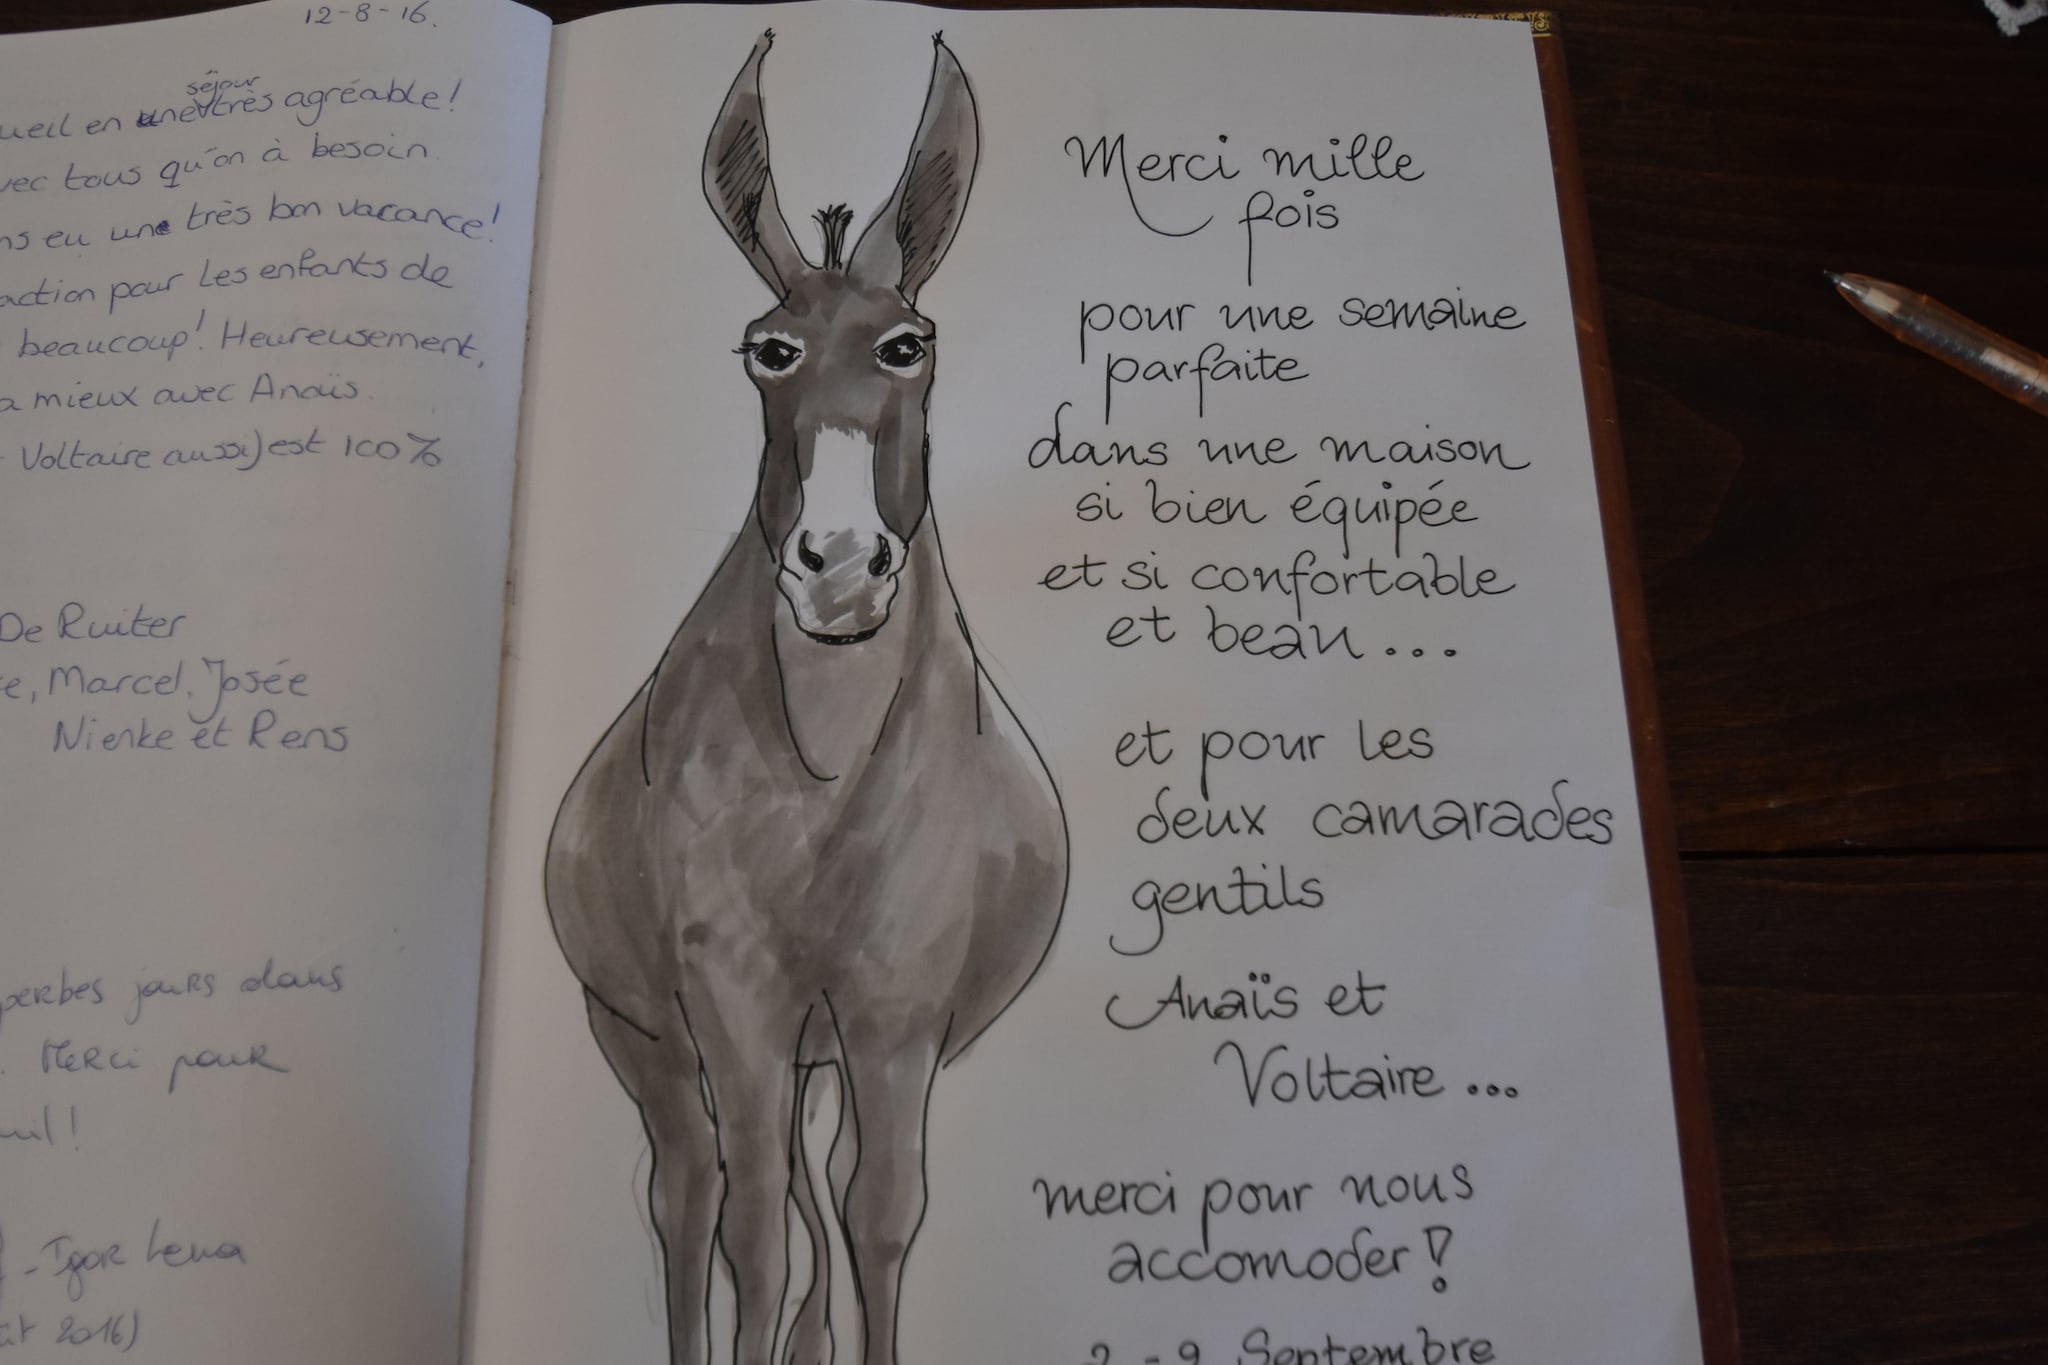 12-8-16.
séjour
ueil en une très agréable!
vec tous qu'on à besoin.
ns eu une très bon vacance!
action pour les enfants de
beaucoup! Heureusement,
a mieux avec Anaïs.
Voltaire aussi) est 100%
De Ruiter
e, Marcel, Josée
Nienke et Rens
perbes jours dans
. Merci pour
uil!
- Igor Lena
ût 2016)
Merci mille
fois
pour une semaine
parfaite
dans une maison
si bien équipée
et si confortable
et beau...
et pour les
deux camarades
gentils
Anaïs et
Voltaire ...
merci pour nous
accomoder!
2 - 9 Septembre